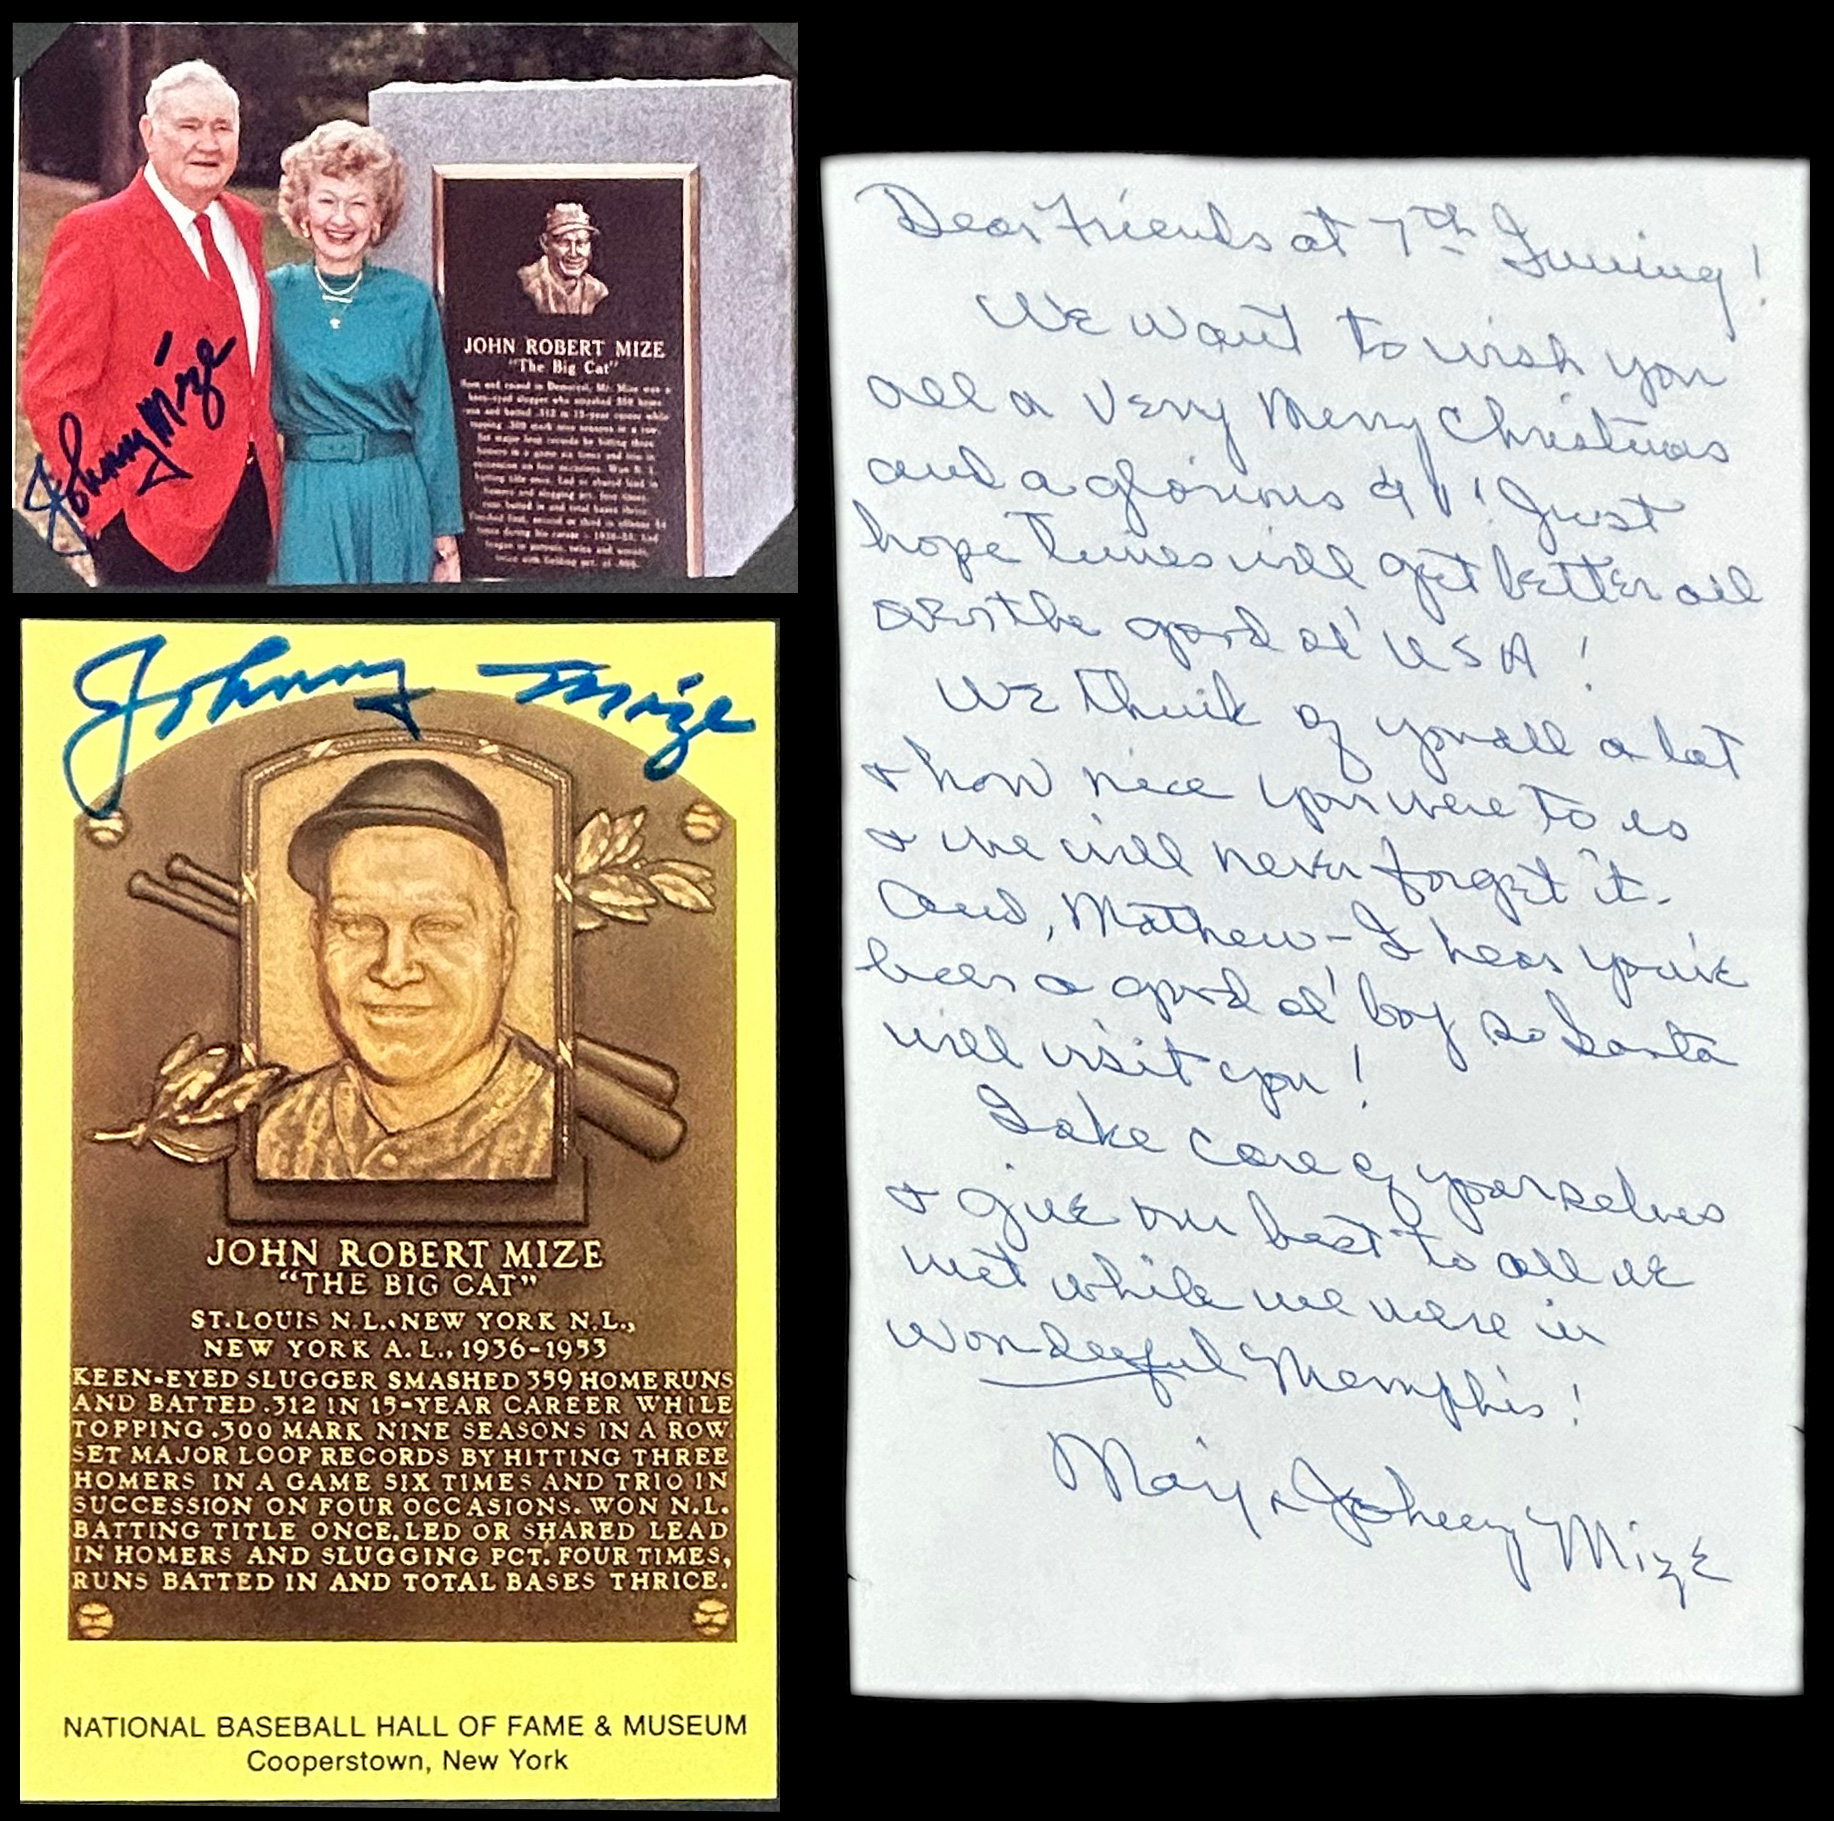 JOHN ROBERT MIZE
"The Big Cat"
Born and raised in Demorest, Mr. Mize was a
keen-eyed slugger who smashed 359 home
runs and batted .312 in 15-year career while
topping .300 mark nine seasons in a row.
Set major loop records by hitting three
homers in a game six times and trio in
succession on four occasions. Won N. L.
batting title once. Led or shared lead in
homers and slugging pct. four times,
runs batted in and total bases thrice.
Finished first, second or third in offense 54
times during his career - 1936-53. Led
league in putouts, twice and assists,
twice with fielding pct. of
Johnny Mize
Johnny Mize
JOHN ROBERT MIZE
"THE BIG CAT"
ST. LOUIS N.L., NEW YORK N.L.,
NEW YORK A.L., 1936-1953
KEEN-EYED SLUGGER SMASHED 359 HOME RUNS
AND BATTED .312 IN 15-YEAR CAREER WHILE
TOPPING .300 MARK NINE SEASONS IN A ROW.
SET MAJOR LOOP RECORDS BY HITTING THREE
HOMERS IN A GAME SIX TIMES AND TRIO IN
SUCCESSION ON FOUR OCCASIONS. WON N.L.
BATTING TITLE ONCE. LED OR SHARED LEAD
IN HOMERS AND SLUGGING PCT. FOUR TIMES,
RUNS BATTED IN AND TOTAL BASES THRICE.
NATIONAL BASEBALL HALL OF FAME & MUSEUM
Cooperstown, New York
Dear Friends at 7th Inning!
We want to wish you
all a very Merry Christmas
and a glorious 91! Just
hope times will get better all
over the good ol' USA!
We think of you all a lot
& how nice you were to us
& we will never forget it.
And, Mathew - I hear you've
been a good ol' boy so Santa
will visit you!
Take care of yourselves
& give our best to all we
met while we were in
wonderful Memphis!
Marj & Johnny Mize